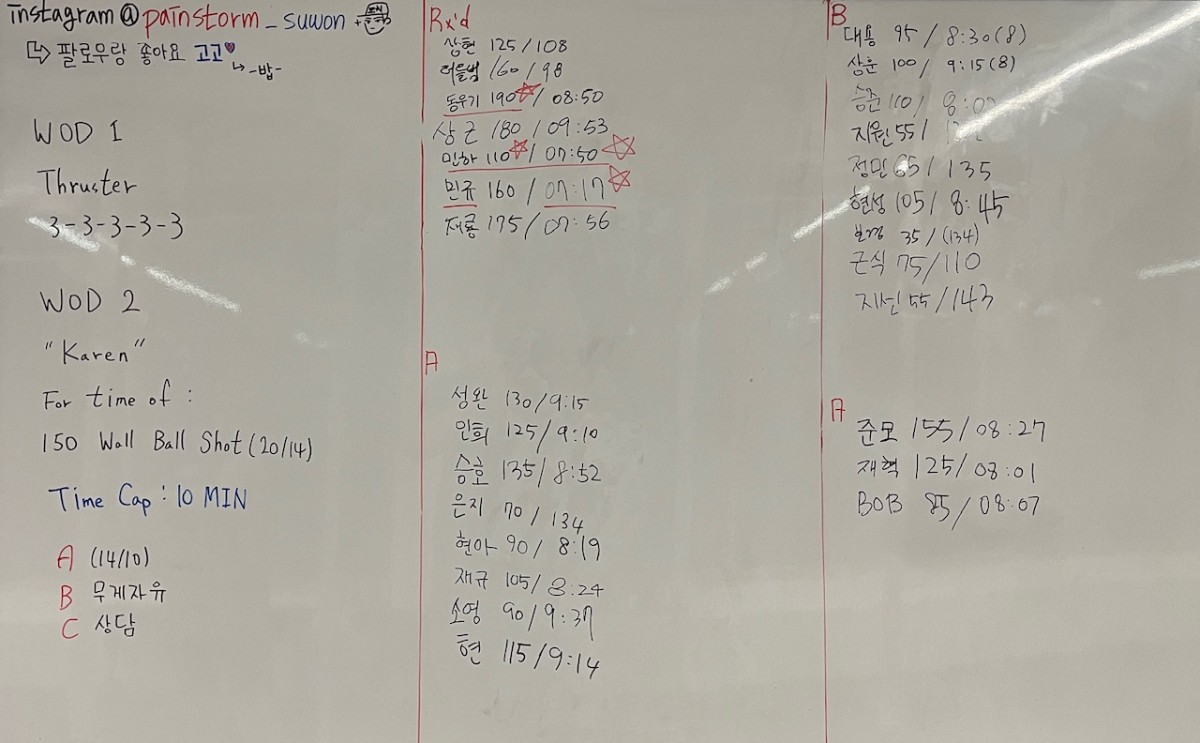 instagram@painstorm_suwon
↳ 팔로우랑 좋아요 고고♥
↳ -밥-
WOD 1
Thruster
3-3-3-3-3
WOD 2
"Karen"
For time of :
150 Wall Ball Shot (20/14)
Time Cap : 10 MIN
A (14/10)
B 무게자유
C 상담
Rx'd
상현 125/108
160/98
동우기 190☆/08:50
상근 180/09:53
민하 110☆/07:50 ☆
민규 160/07:17 ☆
재룡 175/07:56
A
성완 130/9:15
인희 125/9:10
승호 135/8:52
은지 70/134
현아 90/8:19
재규 105/8:24
소영 90/9:37
현 115/9:14
B
대용 95/8:30(8)
상훈 100/9:15(8)
승준 110/
지원 55/
정민 65/135
현성 105/8:45
보경 35/(134)
근식 75/110
지선 55/143
A
준모 155/08:27
재혁 125/08:01
BOB 85/08:07